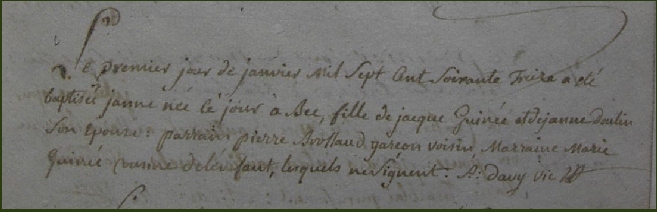 Le premier jour de janvier mil sept cent soixante treize a été
baptisée janne née le jour à Bec, fille de jacque Guinée et de janne
son epouse : parrain pierre Brossaud garcon voisin Marraine Marie
Guinée de lenfant, lesquels ne signent. A: Davy vic